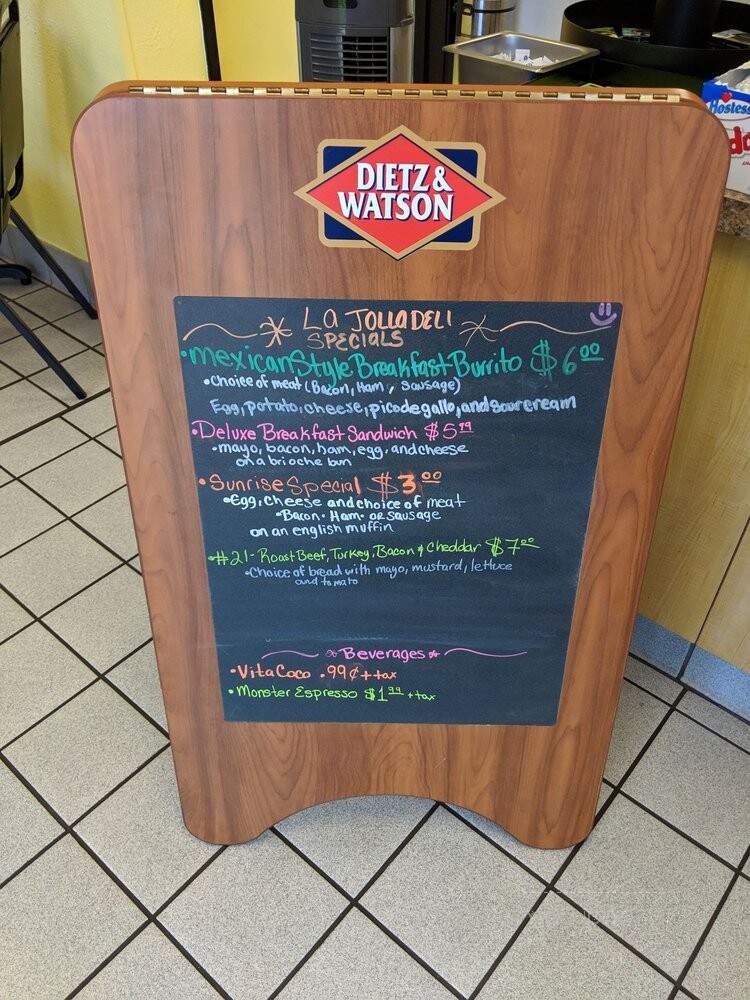 Hostess
DIETZ &
WATSON
La JOLLA DELI
SPECIALS
•Mexican Style Breakfast Burrito $6.00
•Choice of meat (Bacon, Ham, Sausage)
Egg, potato, cheese, pico de gallo, and sour cream
•Deluxe Breakfast Sandwich $5.99
•mayo, bacon, ham, egg, and cheese
on a brioche bun
•Sunrise Special $3.00
•Egg, cheese and choice of meat
•Bacon• Ham• or sausage
on an english muffin
•#21- Roast Beef, Turkey, Bacon & Cheddar $7.00
•Choice of bread with mayo, mustard, lettuce
and tomato
Beverages
•Vita Coco .99¢ + tax
•Monster Espresso $1.99 + tax